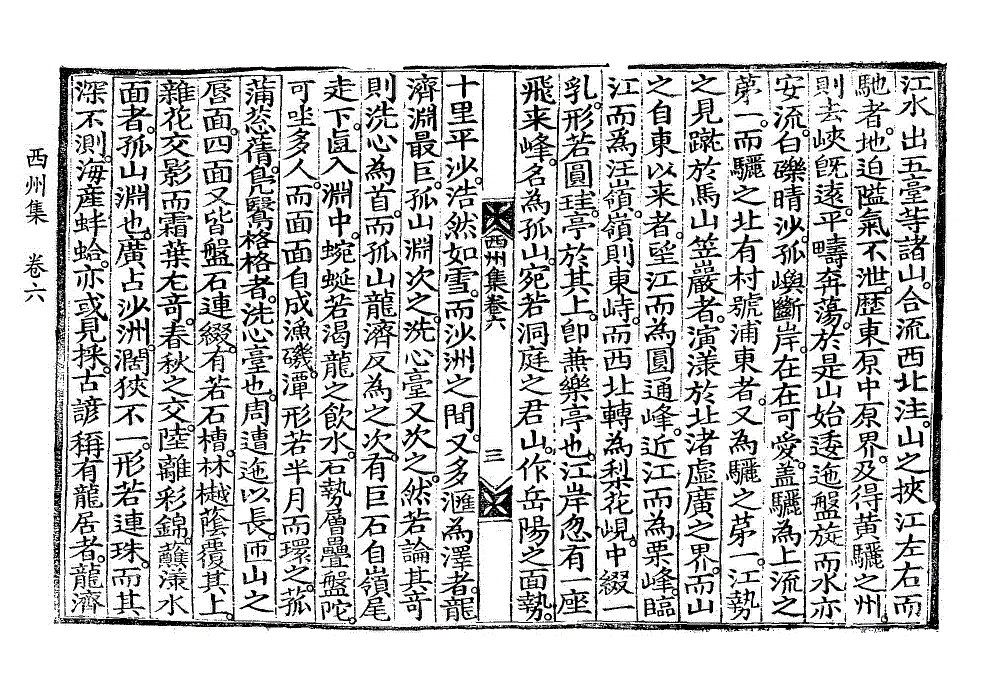 江水出五臺等諸山。合流西北注。山之挾江左右而
馳者。地迫隘氣不泄。歷東原中原界。及得黃驪之州。
則去峽旣遠。平疇奔蕩。於是山始逶迤盤旋而水亦
安流。白礫晴沙。孤嶼斷岸。在在可愛。盖驪爲上流之
第一。而驪之北有村號浦東者。又爲驪之第一。江勢
之見蹴於馬山笠巖者。演漾於北渚虛廣之界。而山
之自東以來者。望江而爲圓通峰。近江而爲栗峰。臨
江而爲汪嶺。嶺則東峙。而西北轉爲梨花峴。中綴一
乳。形若圓珪。亭於其上。卽兼樂亭也。江岸忽有一座
飛来峰。名為孤山。宛若洞庭之君山。作岳陽之面勢。
西州集卷六
三
十里平沙。浩然如雪。而沙洲之間。又多滙為澤者。龍
濟淵最巨。孤山淵次之。洗心臺又次之。然若論其奇
則洗心為首。而孤山龍濟反為之次。有巨石自嶺尾
走下。直入淵中。蜿蜒若渴龍之飮水。石勢層疊盤陀。
可坐多人。而面面自成漁磯。潭形若半月而環之。菰
蒲葱蒨。鳧鷖格格者。洗心臺也。周遭迤以長。匝山之
唇面。四面又皆盤石連綴。有若石槽。林樾蔭覆其上。
雜花交影而霜葉尤奇。春秋之交。陸離彩錦。蘸漾水
面者。孤山淵也。廣占沙洲。濶狹不一。形若連珠。而其
深不測。海産蚌蛤。亦或見採。古諺稱有龍居者。龍濟
西州集 卷六